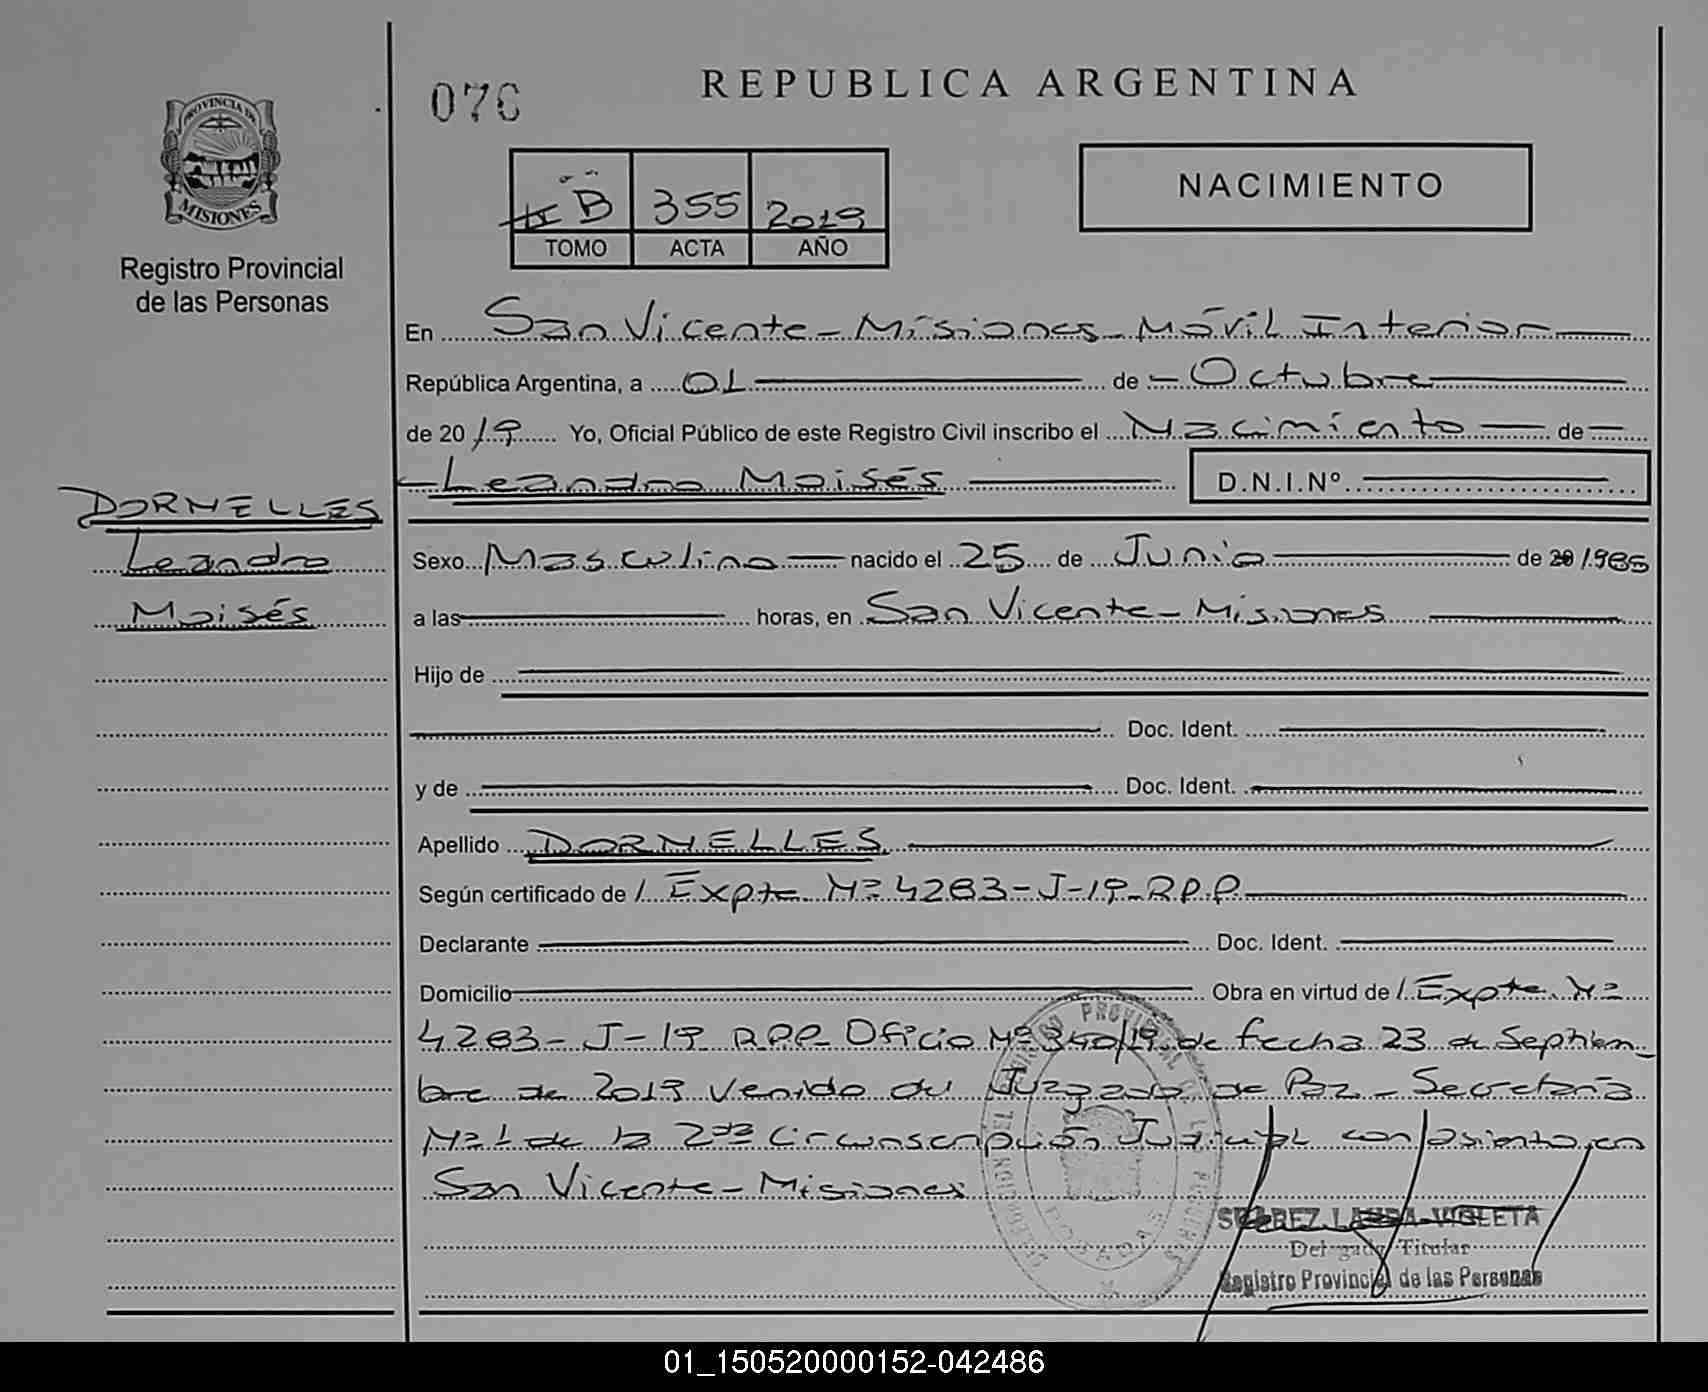 076
REPUBLICA ARGENTINA
PROVINCIA DE
MISIONES
Registro Provincial
de las Personas
B 355 2019
TOMO ACTA AÑO
NACIMIENTO
En San Vicente - Misiones - Móvil Interior
República Argentina, a 01 de Octubre
de 2019 Yo, Oficial Público de este Registro Civil inscribo el Nacimiento de
Leandro Moisés D.N.I.Nº
DORNELLES
Leandro
Moisés
Sexo Masculino nacido el 25 de Junio de 1985
a las horas, en San Vicente - Misiones
Hijo de
Doc. Ident.
y de Doc. Ident.
Apellido DORNELLES
Según certificado de Expte Nº 4283-J-19-R.P.P.
Declarante Doc. Ident.
Domicilio Obra en virtud de Expte. Nº
4283-J-19 R.P.P. Oficio Nº 340/19 de fecha 23 de Septiem-
bre de 2019 venido del Juzgado de Paz - Secretaría
Nº 1 de la 2da Circunscripción Judicial con asiento en
San Vicente - Misiones
SUAREZ LAURA VIOLETA
Delegada Titular
Registro Provincial de las Personas
01_150520000152-042486